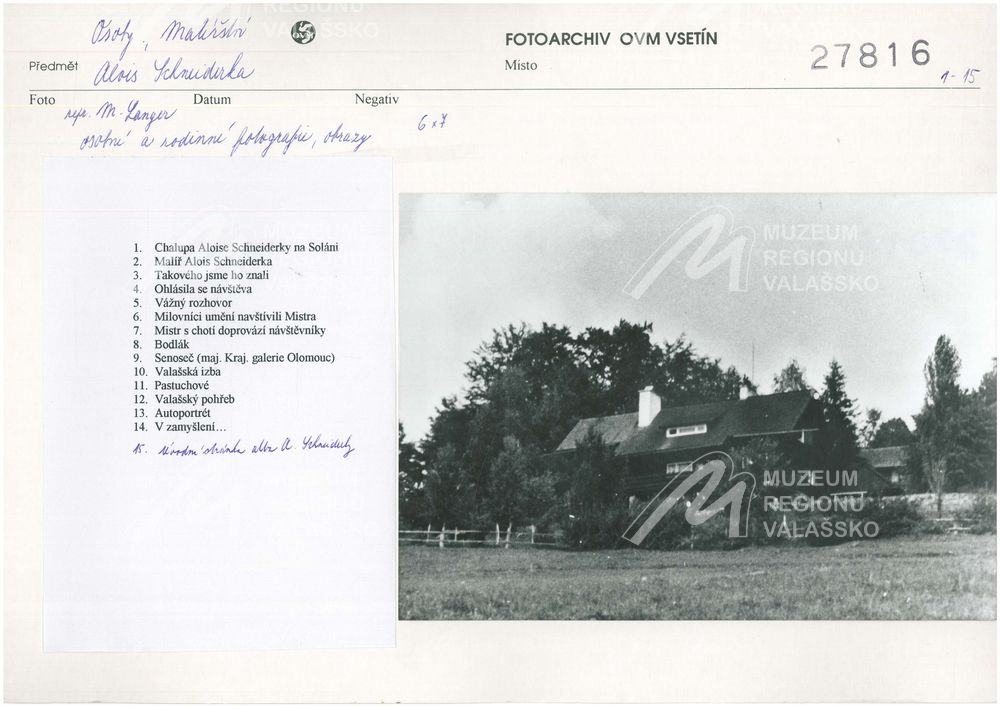 Osoby, Malířství
OVM
FOTOARCHIV OVM VSETÍN
27816
1-15
Předmět
Alois Schneiderka
Místo
Foto
Datum
Negativ
repr. M. Langer
6x7
osobní a rodinné fotografie, obrazy
1. Chalupa Aloise Schneiderky na Soláni
2. Malíř Alois Schneiderka
3. Takového jsme ho znali
4. Ohlásila se návštěva
5. Vážný rozhovor
6. Milovníci umění navštívili Mistra
7. Mistr s chotí doprovází návštěvníky
8. Bodlák
9. Senoseč (maj. Kraj. galerie Olomouc)
10. Valašská izba
11. Pastuchové
12. Valašský pohřeb
13. Autoportrét
14. V zamyšlení…
15. Úvodní stránka alba A. Schneiderky
MUZEUM
REGIONU
VALAŠSKO
MUZEUM
REGIONU
VALAŠSKO
REGIONU
VALAŠSKO